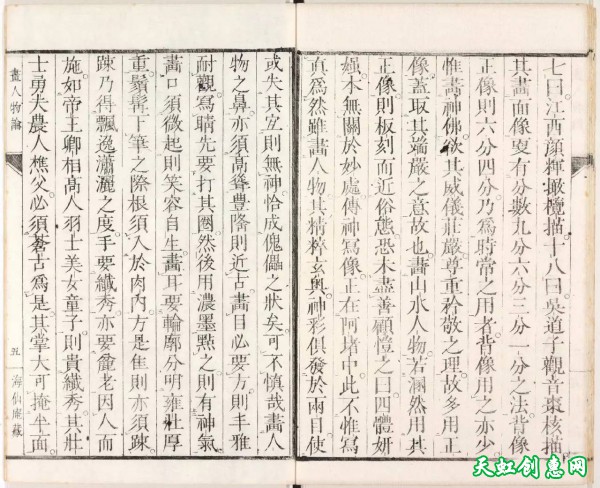 七曰江西顏輝橄欖描十八曰吳道子觀音棗核描
其畫面像更有分數九分六分三分一分之法背像
正像則六分四分乃爲時常之用者背像用之亦少
惟壽神佛欲其威儀莊嚴尊重矜敬之理故多用正
像蓋取其端嚴之意故也畫山水人物若溷然用其
正像則板刻而近俗態恐未盡善顧愷之曰四體妍
媸本無關於妙處傳神寫像正在阿堵中此不惟寫
真爲然雖畫人物其精粹玄奧神彩俱發於兩目使
或失其宜則無神恰成傀儡之狀矣可不慎哉畫人
物之鼻亦須高聳豐隆則近古畫目必要方則丰雅
耐觀寫睛先要打其圈然後用濃墨點之則有神氣
畫口須微起則笑容自生畫耳要輪廓分明雍壯厚
重鬚髯上筆之際根須入於肉內方是隹則亦須踈
踈乃得飄逸瀟灑之度手要纖秀亦要麄老因人而
施如帝王卿相高人羽士美女童子則貴纖秀其壯
士勇夫農人樵父必須蒼古爲是其掌大可掩半面
畫人物論
五 海仙庫藏
天虹创意网